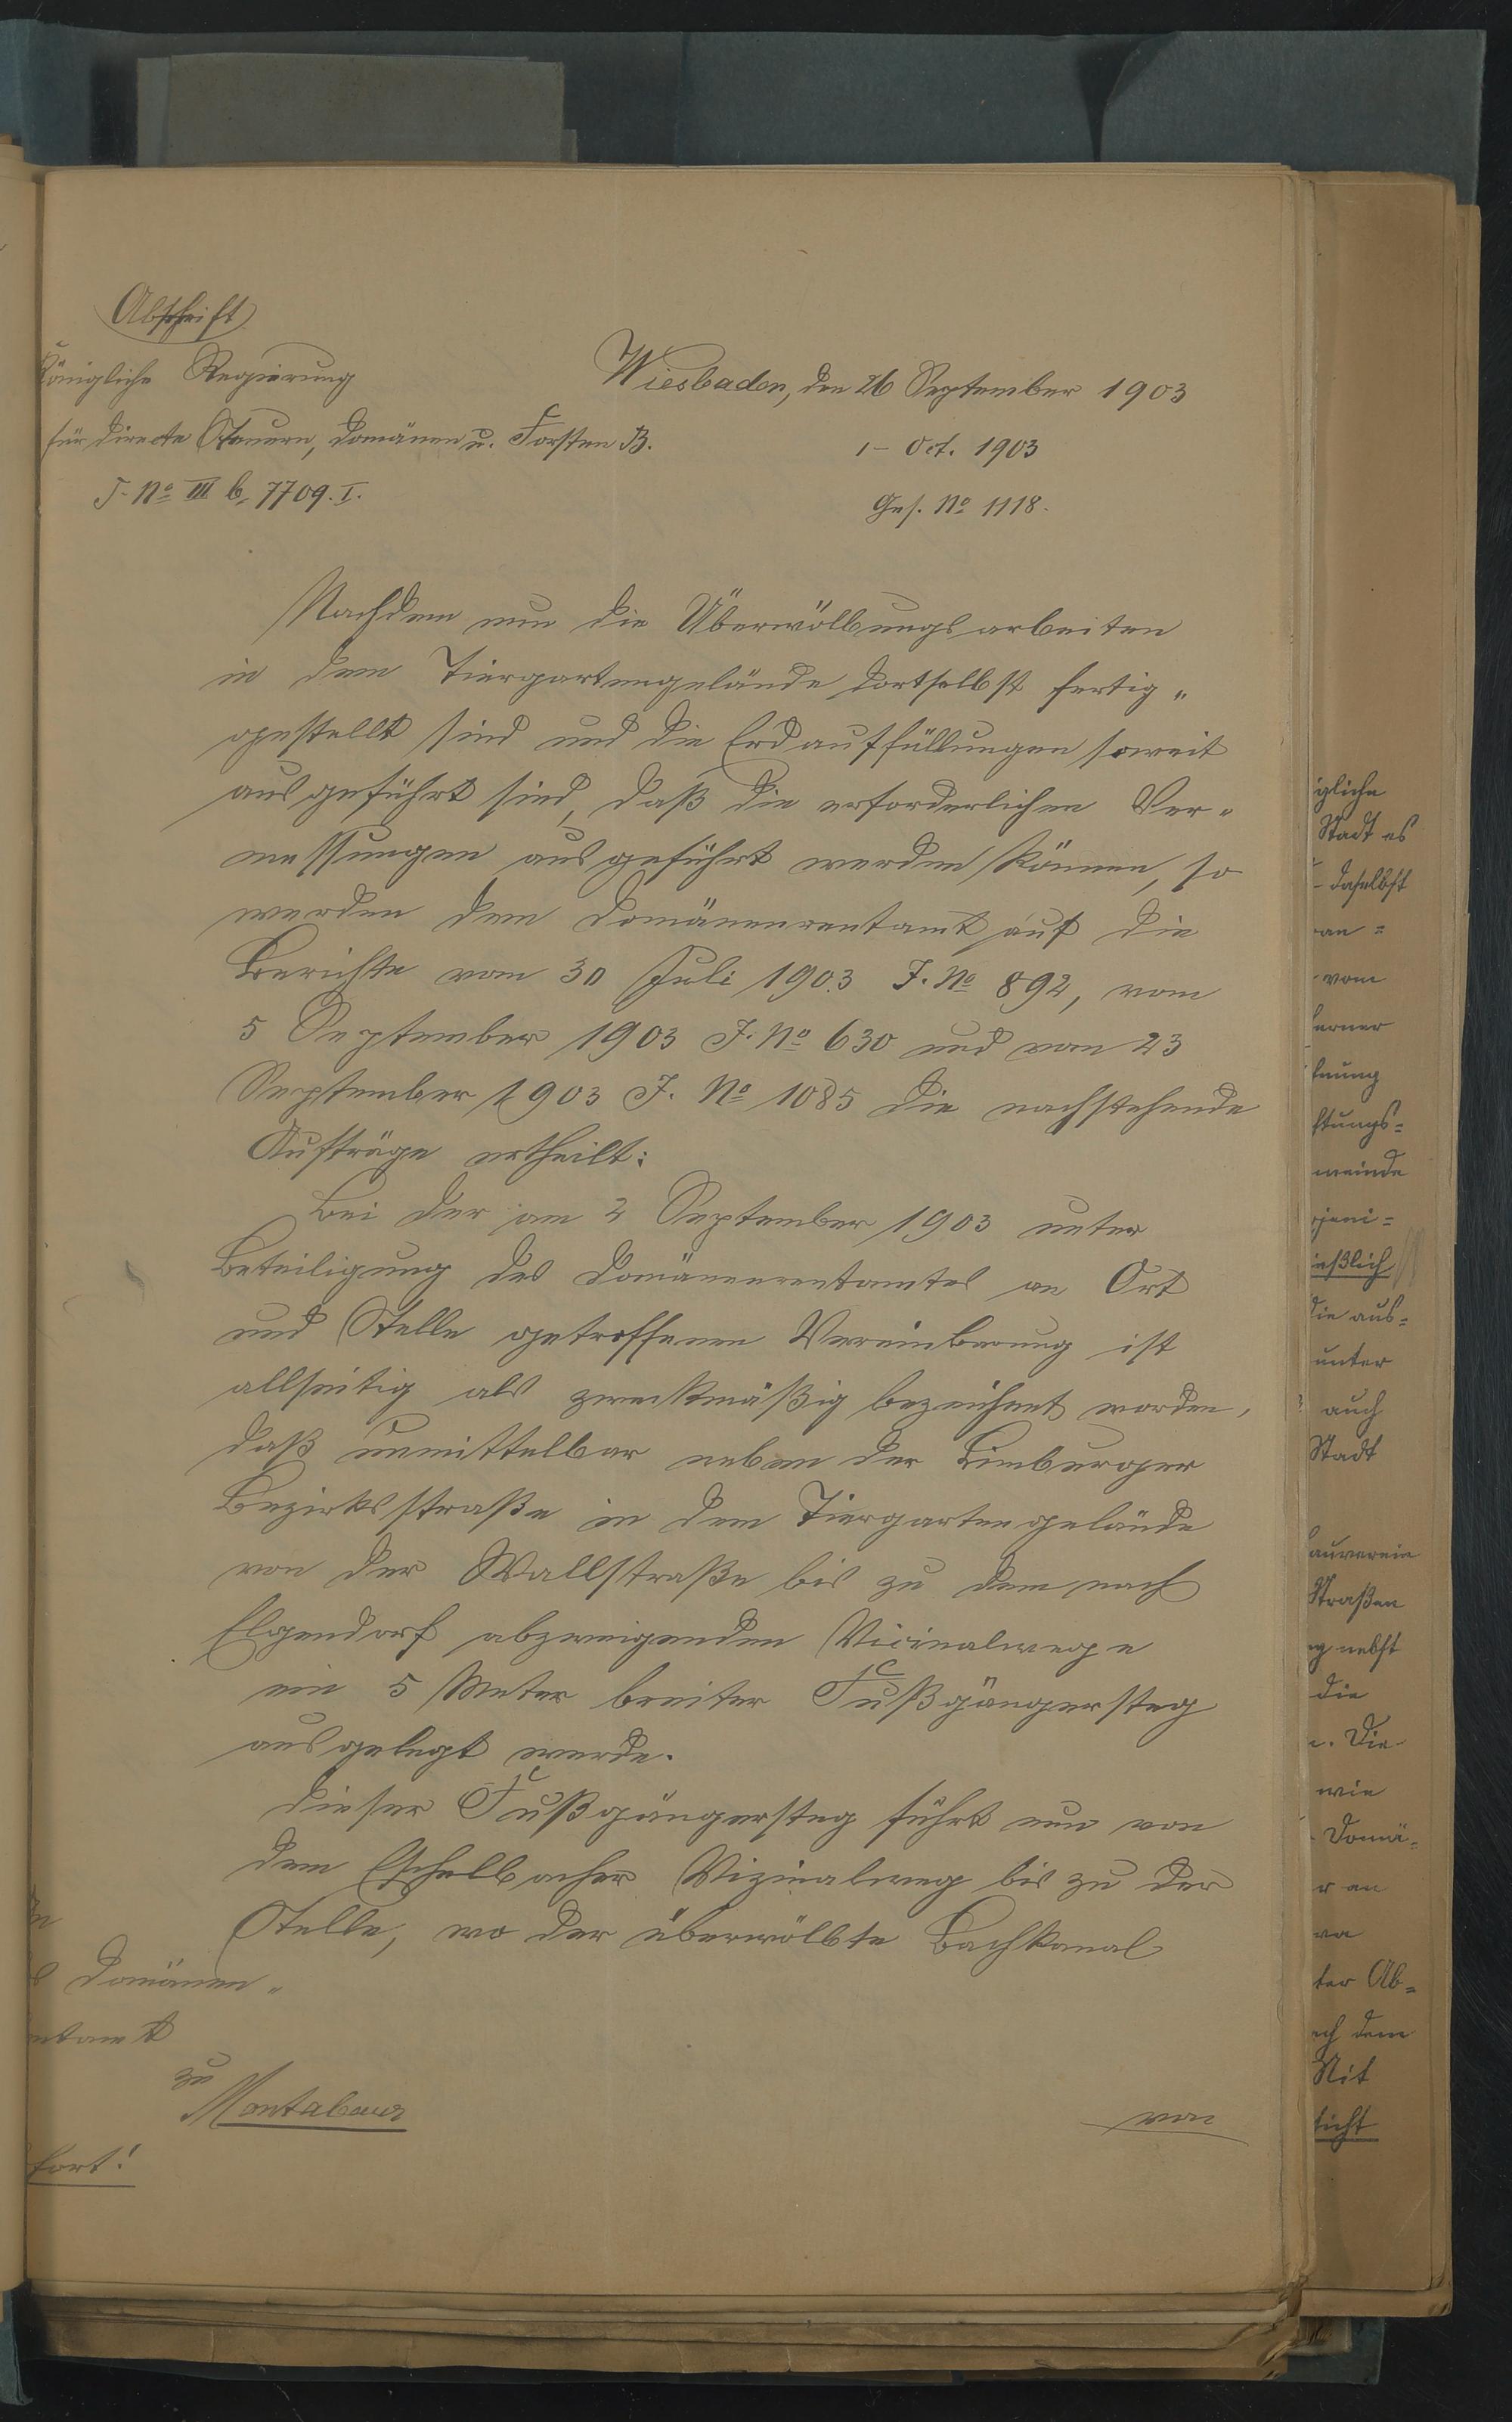 Abschrift
Königliche Regierung
für directe Steuern, Domänen u. Forsten B.
J. No III b, 7709. I.
Wiesbaden, den 26 September 1903
1- Oct. 1903
Ges. No 1118.
Nachdem nun die Überwölbungsarbeiten
in dem Tiergartengelände dortselbst fertig"
gestellt sind und die Erdauffüllungen soweit
ausgeführt sind, daß die erforderlichen Ver"
messungen ausgeführt werden können, so
werden dem Domänenrentamt auf die
Berichte vom 30 Juli 1903 J. No 892, vom
5 September 1903 J. No 630 und vom 23
September 1903 J. No 1085 die nachstehende
Aufträge ertheilt:
Bei der am 2 September 1903 unter
Beteiligung des Domänenrentamtes an Ort
und Stelle getroffenen Vereinbarung ist
allseitig als zweckmäßig bezeichnet worden,
daß unmittelbar neben der Limburger
Bezirksstraße in dem Tiergartengelände
von der Wallstraße bis zu dem nach
Elgendorf abzweigenden Vicinalwege
ein 5 Meter breiter Fußgängersteg
ausgelegt werde.
Dieser Fußgängersteg führt nun von
dem Eschelbacher Vizinalweg bis zu der
Stelle, wo der überwölbte Bachkanal
Domänen"
ntamt
zu
Montabaur
von
fort!
igliche
Stadt es
- daselbst
an =
vom
ferner
fnung
ftungs=
meinde
jeni=
ießlich
die aus=
unter
auch
Stadt
auverein
Straßen
g nebst
die
. Die
wie
Domä=
r an
ter Ab=
ch dem
Mit
ficht